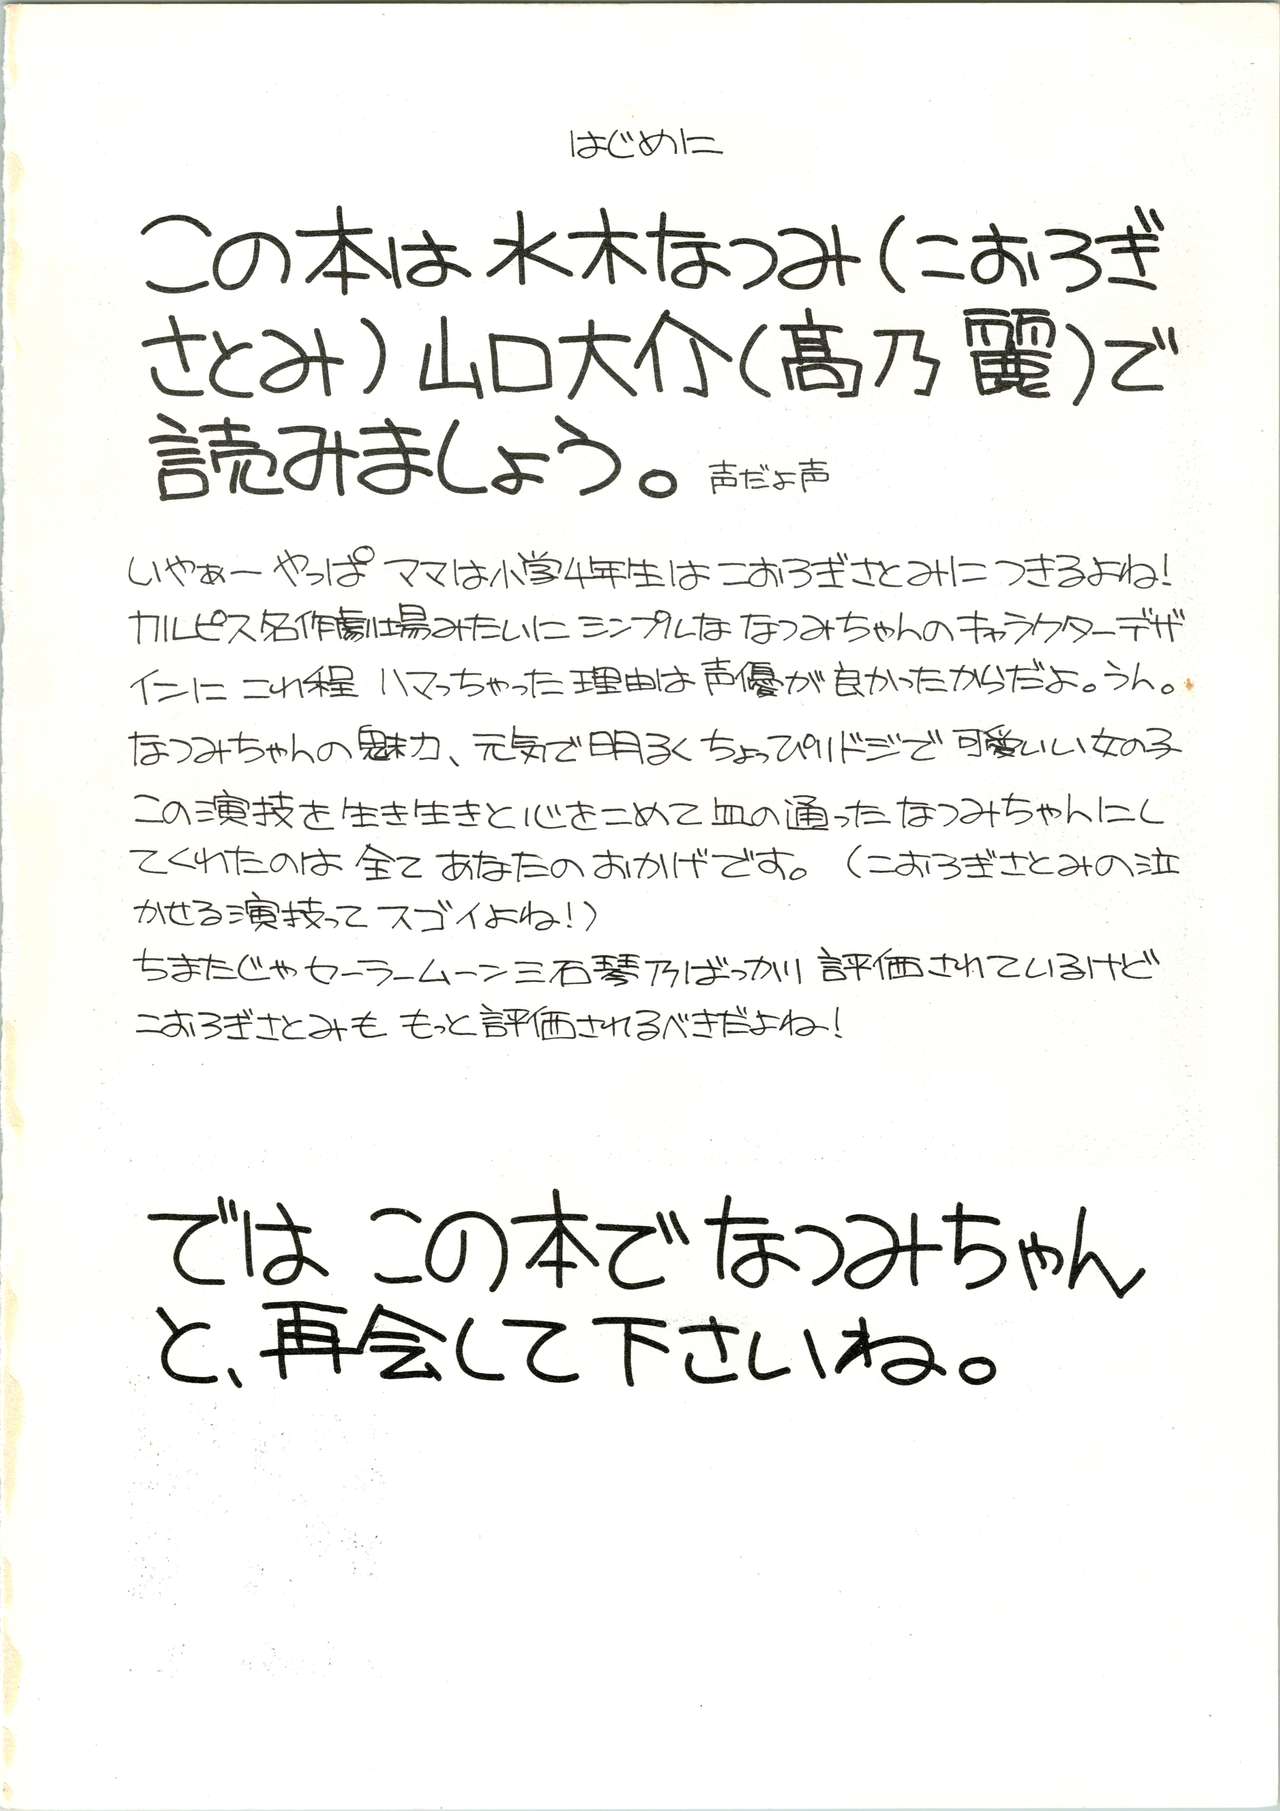 はじめに
この本は 水木なつみ(こおろぎ
さとみ)山口大介(高乃 麗)で
読みましょう。 声だよ声
いやぁー やっぱ ママは小学4年生は こおろぎさとみに つきるよね!
カルピス名作劇場みたいに シンプルな なつみちゃんのキャラクターデザ
インに これ程 ハマっちゃった理由は声優が良かったからだよ。うん。
なつみちゃんの魅力、元気で明るくちょっぴりドジで可愛いい女の子
この演技を生き生きと心をこめて血の通ったなつみちゃんにし
てくれたのは 全て あなたのおかげです。 (こおろぎさとみの泣
かせる演技って スゴイよね!)
ちまたじゃセーラームーン三石琴乃ばっかり 評価されているけど
こおろぎさとみも もっと評価されるべきだよね!
では この本で なつみちゃん
と、再会して下さいね。